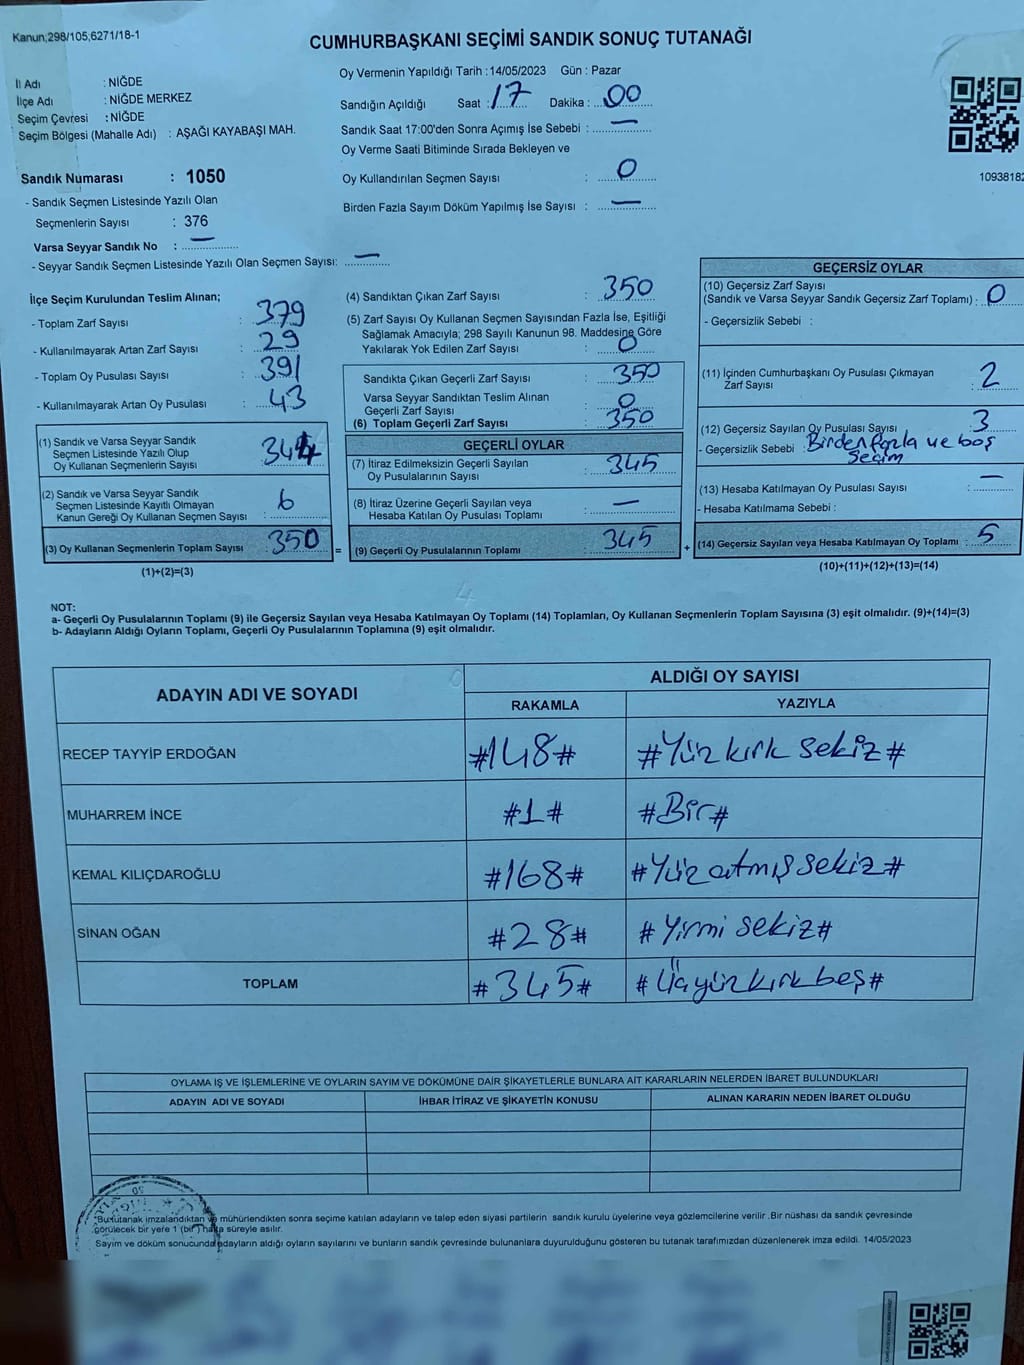 Kanun;298/105,6271/18-1
CUMHURBAŞKANI SEÇİMİ SANDIK SONUÇ TUTANAĞI
İl Adı : NİĞDE
İlçe Adı : NİĞDE MERKEZ
Seçim Çevresi : NİĞDE
Seçim Bölgesi (Mahalle Adı) : AŞAĞI KAYABAŞI MAH.
Sandık Numarası : 1050
- Sandık Seçmen Listesinde Yazılı Olan
Seçmenlerin Sayısı : 376
Varsa Seyyar Sandık No : —
- Seyyar Sandık Seçmen Listesinde Yazılı Olan Seçmen Sayısı: —
Oy Vermenin Yapıldığı Tarih : 14/05/2023 Gün : Pazar
Sandığın Açıldığı Saat : 17 Dakika : 00
Sandık Saat 17:00'den Sonra Açımış İse Sebebi : —
Oy Verme Saati Bitiminde Sırada Bekleyen ve
Oy Kullandırılan Seçmen Sayısı : 0
Birden Fazla Sayım Döküm Yapılmış İse Sayısı : —
1093818
İlçe Seçim Kurulundan Teslim Alınan;
- Toplam Zarf Sayısı : 379
- Kullanılmayarak Artan Zarf Sayısı : 29
- Toplam Oy Pusulası Sayısı : 391
- Kullanılmayarak Artan Oy Pusulası : 43
(1) Sandık ve Varsa Seyyar Sandık
Seçmen Listesinde Yazılı Olup
Oy Kullanan Seçmenlerin Sayısı : 344
(2) Sandık ve Varsa Seyyar Sandık
Seçmen Listesinde Kayıtlı Olmayan
Kanun Gereği Oy Kullanan Seçmen Sayısı : 6
(3) Oy Kullanan Seçmenlerin Toplam Sayısı : 350
(1)+(2)=(3)
(4) Sandıktan Çıkan Zarf Sayısı : 350
(5) Zarf Sayısı Oy Kullanan Seçmen Sayısından Fazla İse, Eşitliği
Sağlamak Amacıyla; 298 Sayılı Kanunun 98. Maddesine Göre
Yakılarak Yok Edilen Zarf Sayısı : 0
Sandıkta Çıkan Geçerli Zarf Sayısı : 350
Varsa Seyyar Sandıktan Teslim Alınan
Geçerli Zarf Sayısı : 0
(6) Toplam Geçerli Zarf Sayısı : 350
GEÇERLİ OYLAR
(7) İtiraz Edilmeksizin Geçerli Sayılan
Oy Pusulalarının Sayısı : 345
(8) İtiraz Üzerine Geçerli Sayılan veya
Hesaba Katılan Oy Pusulası Toplamı : —
= (9) Geçerli Oy Pusulalarının Toplamı : 345
GEÇERSİZ OYLAR
(10) Geçersiz Zarf Sayısı
(Sandık ve Varsa Seyyar Sandık Geçersiz Zarf Toplamı) : 0
- Geçersizlik Sebebi :
(11) İçinden Cumhurbaşkanı Oy Pusulası Çıkmayan
Zarf Sayısı : 2
(12) Geçersiz Sayılan Oy Pusulası Sayısı : 3
- Geçersizlik Sebebi : Birden fazla ve boş
seçim
(13) Hesaba Katılmayan Oy Pusulası Sayısı : —
- Hesaba Katılmama Sebebi :
+ (14) Geçersiz Sayılan veya Hesaba Katılmayan Oy Toplamı : 5
(10)+(11)+(12)+(13)=(14)
NOT:
a- Geçerli Oy Pusulalarının Toplamı (9) ile Geçersiz Sayılan veya Hesaba Katılmayan Oy Toplamı (14) Toplamları, Oy Kullanan Seçmenlerin Toplam Sayısına (3) eşit olmalıdır. (9)+(14)=(3)
b- Adayların Aldığı Oyların Toplamı, Geçerli Oy Pusulalarının Toplamına (9) eşit olmalıdır.
ADAYIN ADI VE SOYADI
ALDIĞI OY SAYISI
RAKAMLA YAZIYLA
RECEP TAYYİP ERDOĞAN #148# #Yüz kırk sekiz#
MUHARREM İNCE #1# #Bir#
KEMAL KILIÇDAROĞLU #168# #Yüz atmış sekiz#
SİNAN OĞAN #28# #Yirmi sekiz#
TOPLAM #345# #Üçyüz kırk beş#
OYLAMA İŞ VE İŞLEMLERİNE VE OYLARIN SAYIM VE DÖKÜMÜNE DAİR ŞİKAYETLERLE BUNLARA AİT KARARLARIN NELERDEN İBARET BULUNDUKLARI
ADAYIN ADI VE SOYADI İHBAR İTİRAZ VE ŞİKAYETİN KONUSU ALINAN KARARIN NEDEN İBARET OLDUĞU
Bu tutanak imzalandıktan ve mühürlendikten sonra seçime katılan adayların ve talep eden siyasi partilerin sandık kurulu üyelerine veya gözlemcilerine verilir .Bir nüshası da sandık çevresinde
görülecek bir yere 1 (bir) hafta süreyle asılır.
Sayım ve döküm sonucunda adayların aldığı oyların sayılarını ve bunların sandık çevresinde bulunanlara duyurulduğunu gösteren bu tutanak tarafımızdan düzenlenerek imza edildi. 14/05/2023